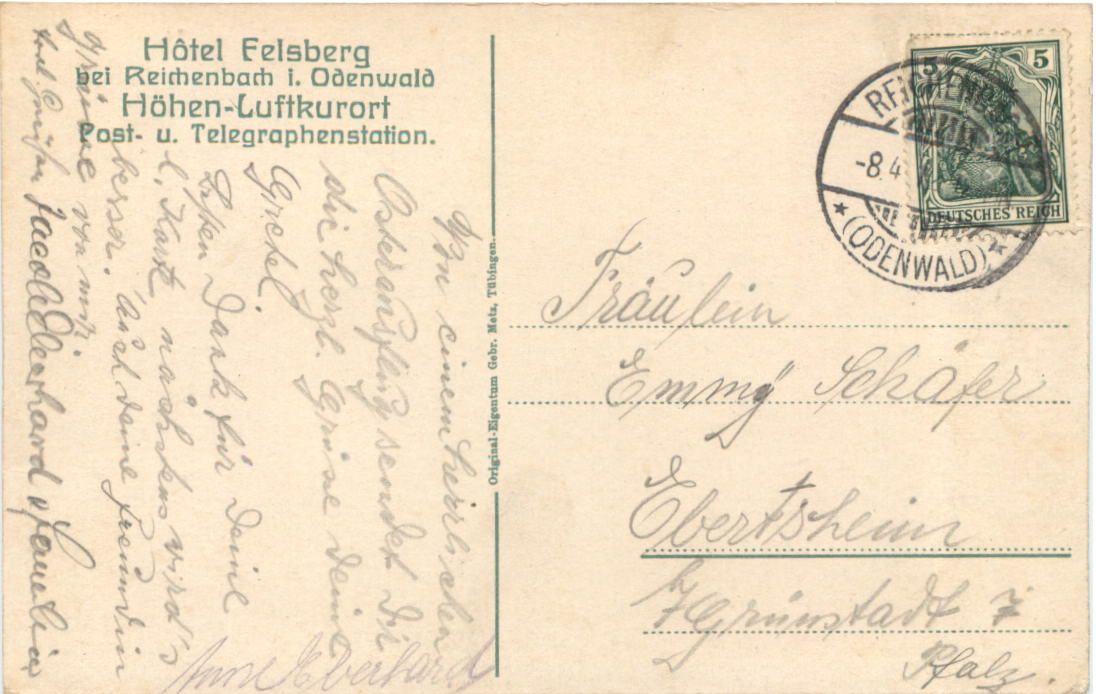 Hôtel Felsberg
bei Reichenbach i. Odenwald
Höhen-Luftkurort
Post- u. Telegraphenstation.
Von einem herrlichen
Osterausflug sendet Dir
die herzl. Grüße deine
Gretel.
Besten Dank für Deine
l. Karte nächstens wird's
besser. Auch deine Freundin
grüße von mir.
Anne Eberhard
Original-Eigentum Gebr. Metz, Tübingen.
5 5
DEUTSCHES REICH
REICHENBACH
-8.4
(ODENWALD)
Fräulein
Emmy Schäfer
Ebertsheim
Grünstadt
Pfalz.